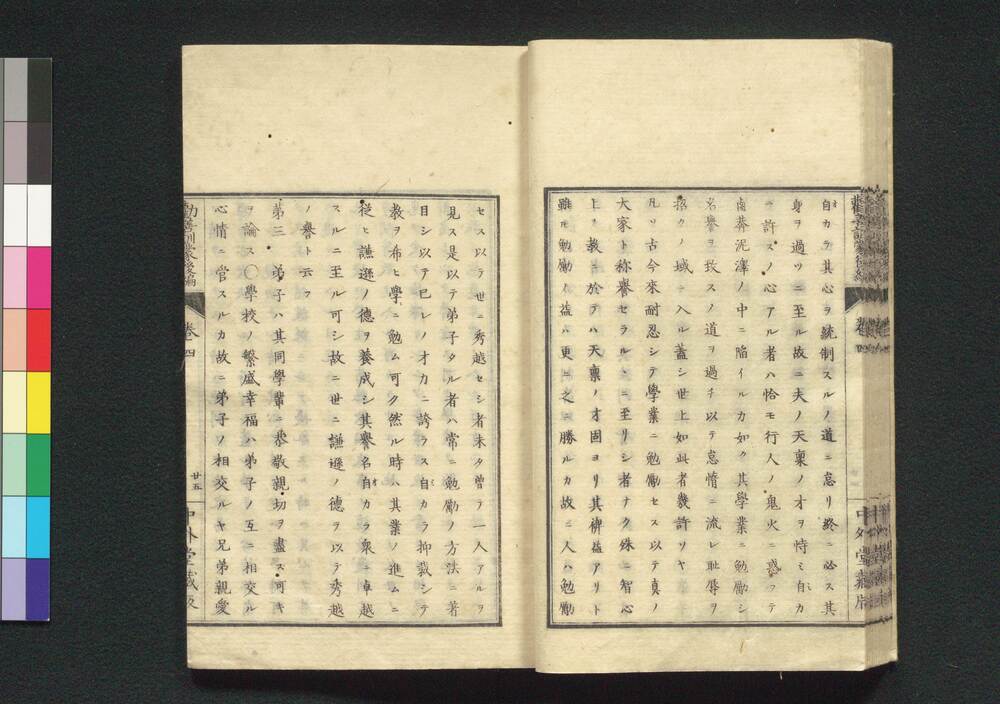 自カラ其心ヲ統制スルノ道ニ怠リ終ニ必ス其
身ヲ過ツニ至ル故ニ夫ノ天稟ノオヲ恃ミ自カ
ラ許スノ心アル者ハ恰モ行人ノ鬼火ニ惑フテ
鹵莽泥澤ノ中ニ陥イルカ如ク其學業ニ勉勵シ
名譽ヲ致スノ道ヲ過チ以テ怠惰ニ流レ耻辱ヲ
招クノ域ニ入ル蓋シ世上如此者幾許ソヤ
凡ソ古今來耐忍シテ學業ニ勉勵セス以テ真ノ
大家ト称譽セラルヽニ至リシ者ナク殊ニ智心
上ノ教ニ於テハ天稟ノオ固ヨリ其裨益アリト
雖モ勉勵ノ益ハ更ニ之ニ勝ルカ故ニ人ハ勉勵
セス以テ世ニ秀越セシ者未タ曽テ一人アルヲ
見ス是以テ弟子タル者ハ常ニ勉勵ノ方法ニ著
目シ以テ已レノオカニ誇ラス自カラ抑裁シテ
教ヲ布ヒ學ニ勉ム可ク然ル時ハ其業ノ進ムニ
從ヒ謙遜ノ德ヲ養成シ其譽名自カラ衆ニ卓越
スルニ至ル可シ故ニ世ニ謙遜ノ德ヲ以テ秀越
ノ譽ト云フ
第三 弟子ハ其同學輩ニ恭敬親切ヲ盡ス可キ
ヲ論ス〇學校ノ繁盛幸福ハ弟子ノ互ニ相交ル
心情ニ官スルカ故ニ弟子ノ相交ルヤ兄弟親愛
卷四
廿五
中外堂藏版